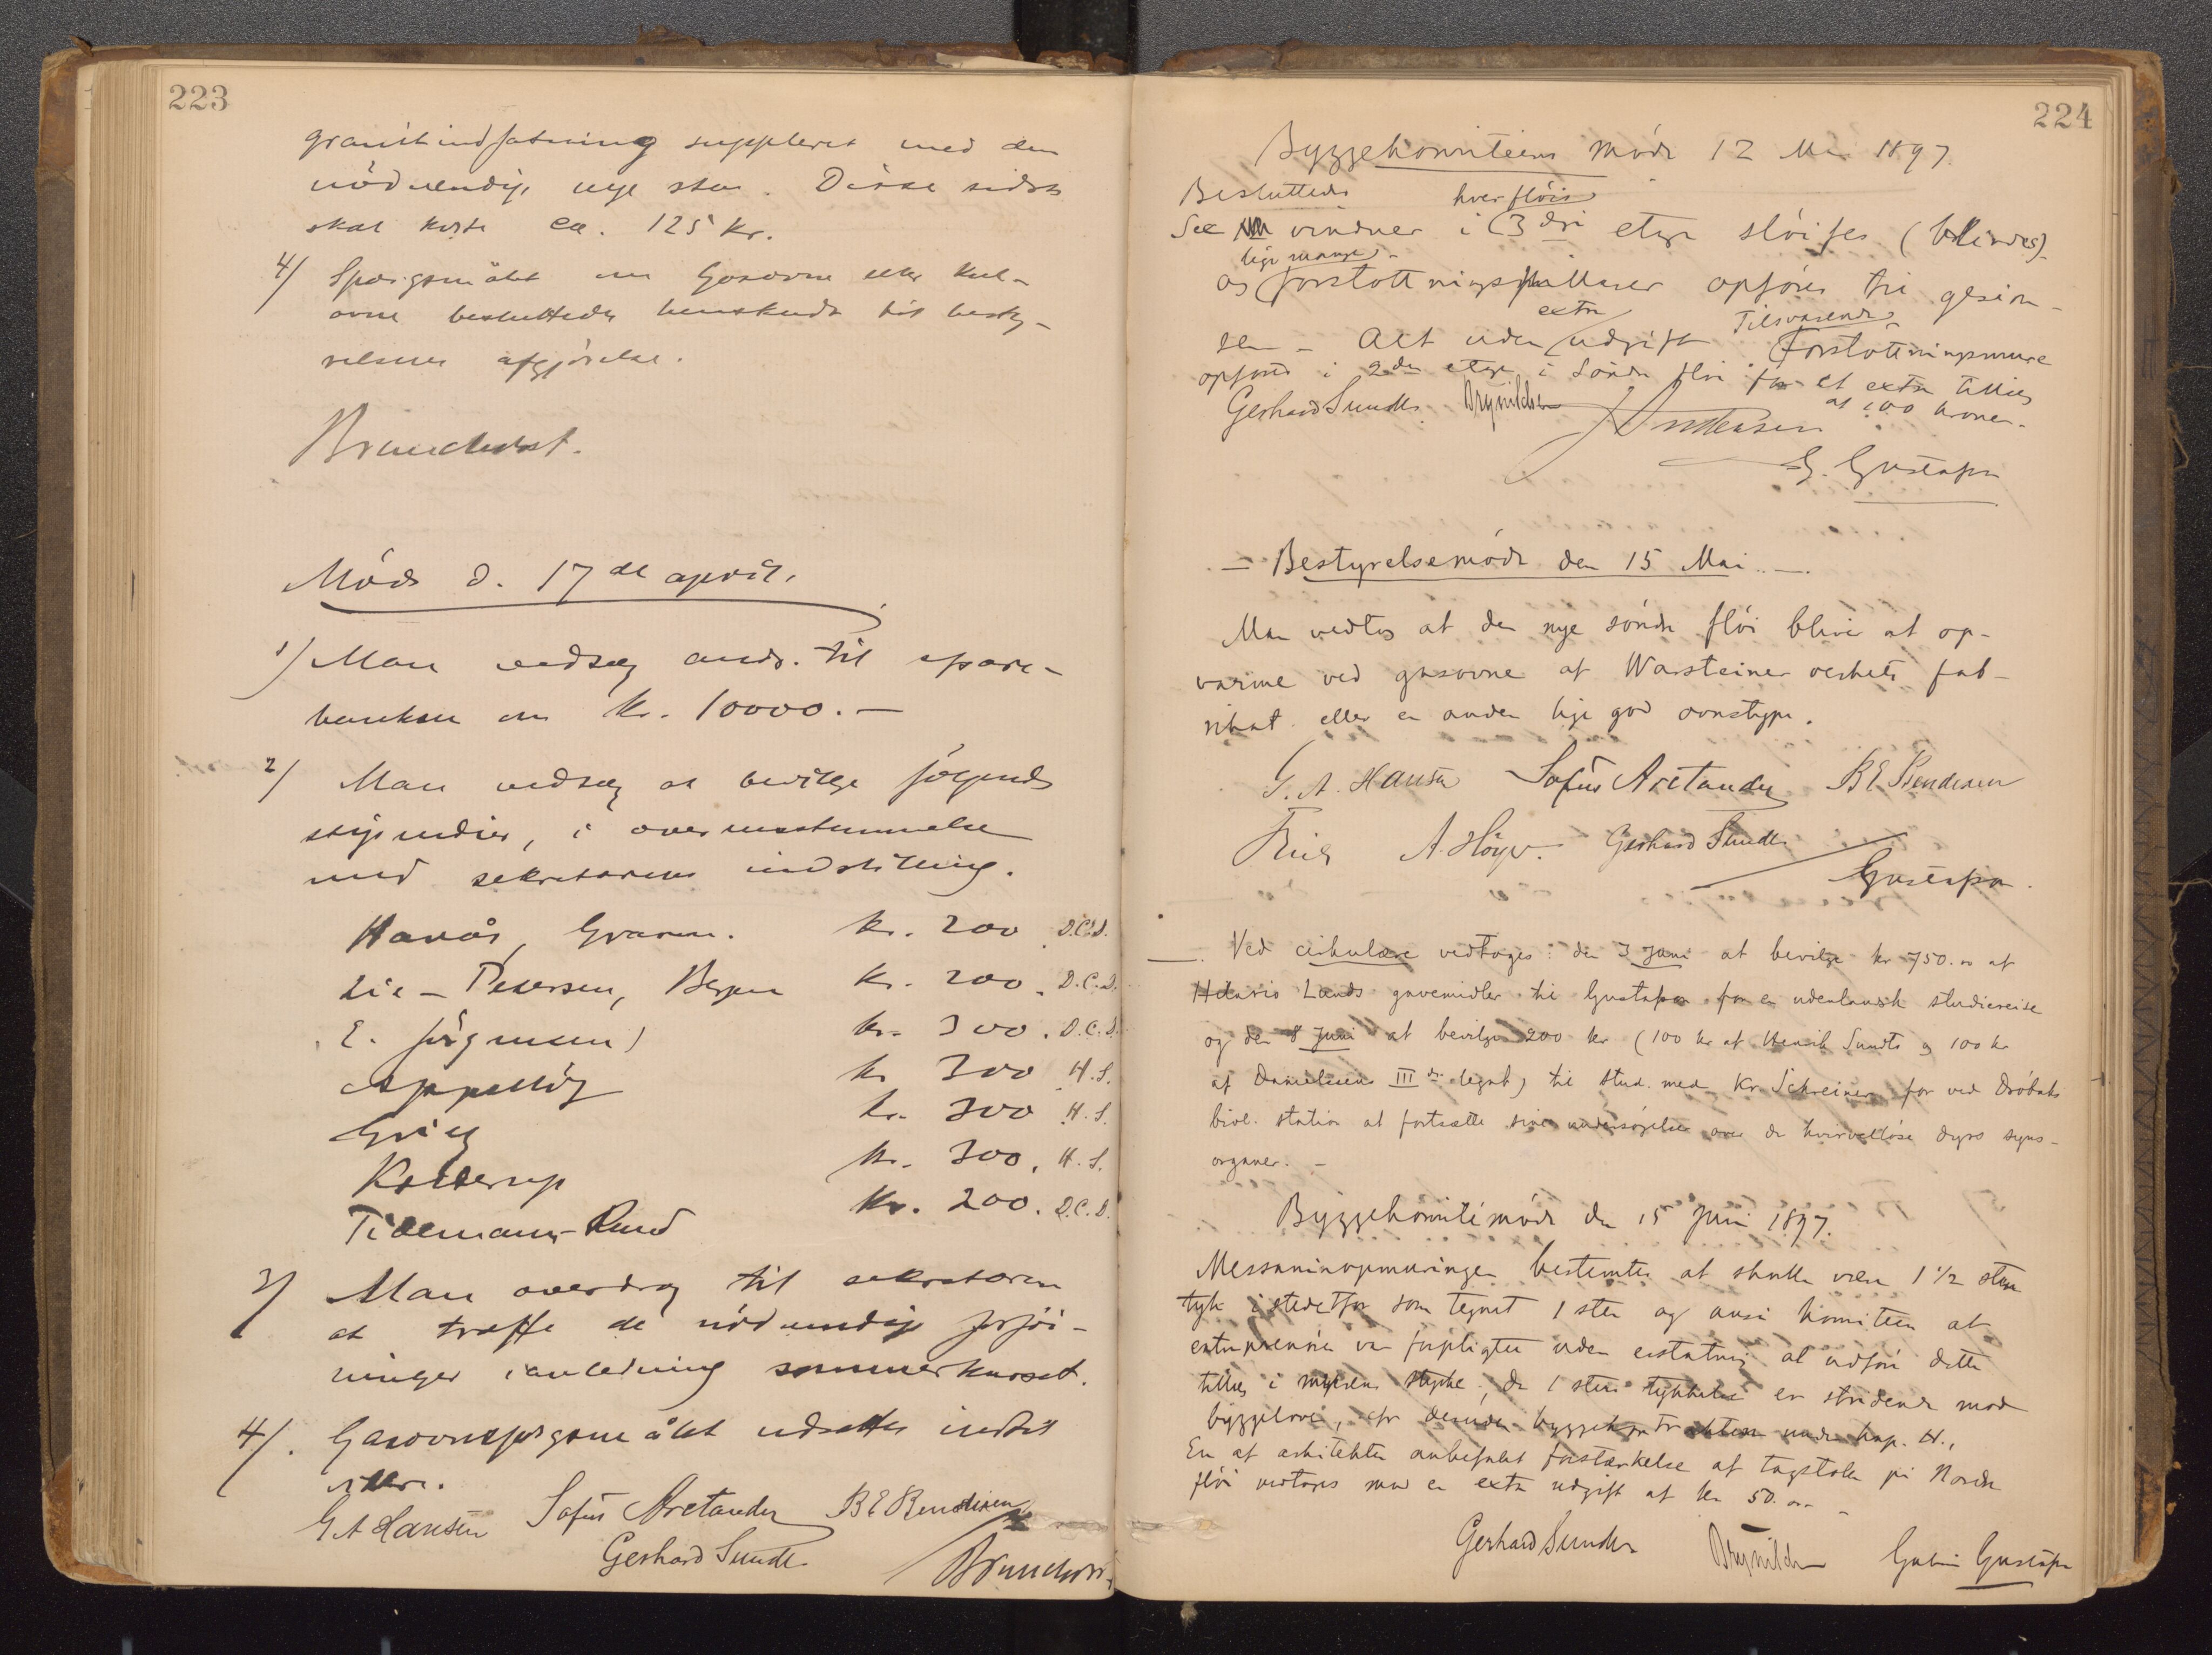 223
granitindfatning suppleret med den
nödvendige nye sten. Disse sidste
skal koste ca. 125 Kr.
4/ Spörgsmålet om Gasovne eller kul-
ovne besluttedes henskudt til besty-
relsens afgjörelse.
Brunchorst.
Möde d. 17de april.
1/ Man vedtog ands. til spare-
banken om Kr. 10000.-
2/ Man vedtog at bevilge følgende
stipendier, i overensstemmelse
med sekretærens indstilling.
Havås, Graven. kr. 200. D.C.D.
Lie-Petersen, Bergen kr. 200. D.C.D.
E. Jörgensen kr. 300. D.C.D.
Appellöf kr 300 H.S.
Grieg kr. 300 H.S.
Kolderup kr. 300. H.S.
Tidemann-Ruud Kr. 200. D.C.D.
3/ Man overdrog til sekretæren
at træffe de nödvendige forföi-
ninger i anledning sommerkurset.
4/. Gasovnspörgsmålet udsattes indtil
videre.
G A Hansen Sofus Aretander B E Bendixen
Gerhard Sundt Brunchorst
224
Byggekomiteens möde 12 Mai 1897.
Besluttedes hver flöis
See vinduer i 3die etage slöifes (blindes)
lige mange
og forstøttningspillarer opföres til gesim-
extra Tilsvarende
sen - Alt uden udgift Forstøttningsmure
opföres i 2den etage i söndre flöi for et extra tillæg
af 100 kroner.
Gerhard Sundt. Brynildsen
G. Gustafson
- Bestyrelsemöde den 15 Mai. -
Man vedtog at den nye söndre flöi bliver at op-
varme ved gasovne af Warsteiner verkets fab-
rikat eller en anden lige god ovnstype.
G. A. Hansen Sofus Aretander B E Bendixen
Friele A. Höyer. Gerhard Sundt
Gustafson.
- Ved cirkulære vedtoges: den 3 Juni at bevilge kr 750.00 af
Hilario Lunds gavemidler til Gustafson for en udenlandsk studiereise
og den 8 Juni at bevilge 200 kr (100 kr af Henrik Sundts og 100 kr
af Danielsens III die legat) til stud. med. Kr Schreiner for ved Dröbaks
biol. station at fortsætte sine undersögelser over de hvirvellöse dyrs syns-
organer. -
Byggekomitémöde den 15 Juni 1897.
Messaninopmuringen bestemtes at skulle være 1 1/2 sten
tyk istedetfor som tegnet 1 sten og anså komiteen at
entreprenören var forpligtet uden erstatning at udföre dette
tillæg i murens tykkelse, da 1 stens tykkelse er stridende mod
byggeloven, cfr desuden byggekontrakten under kap. H.,
En af arkitekten anbefalet forstærkelse af tagstolen på Nordre
flöi vedtoges med en extra udgift af kr 50.00
Gerhard Sundt Brynildsen Gabriel Gustafson